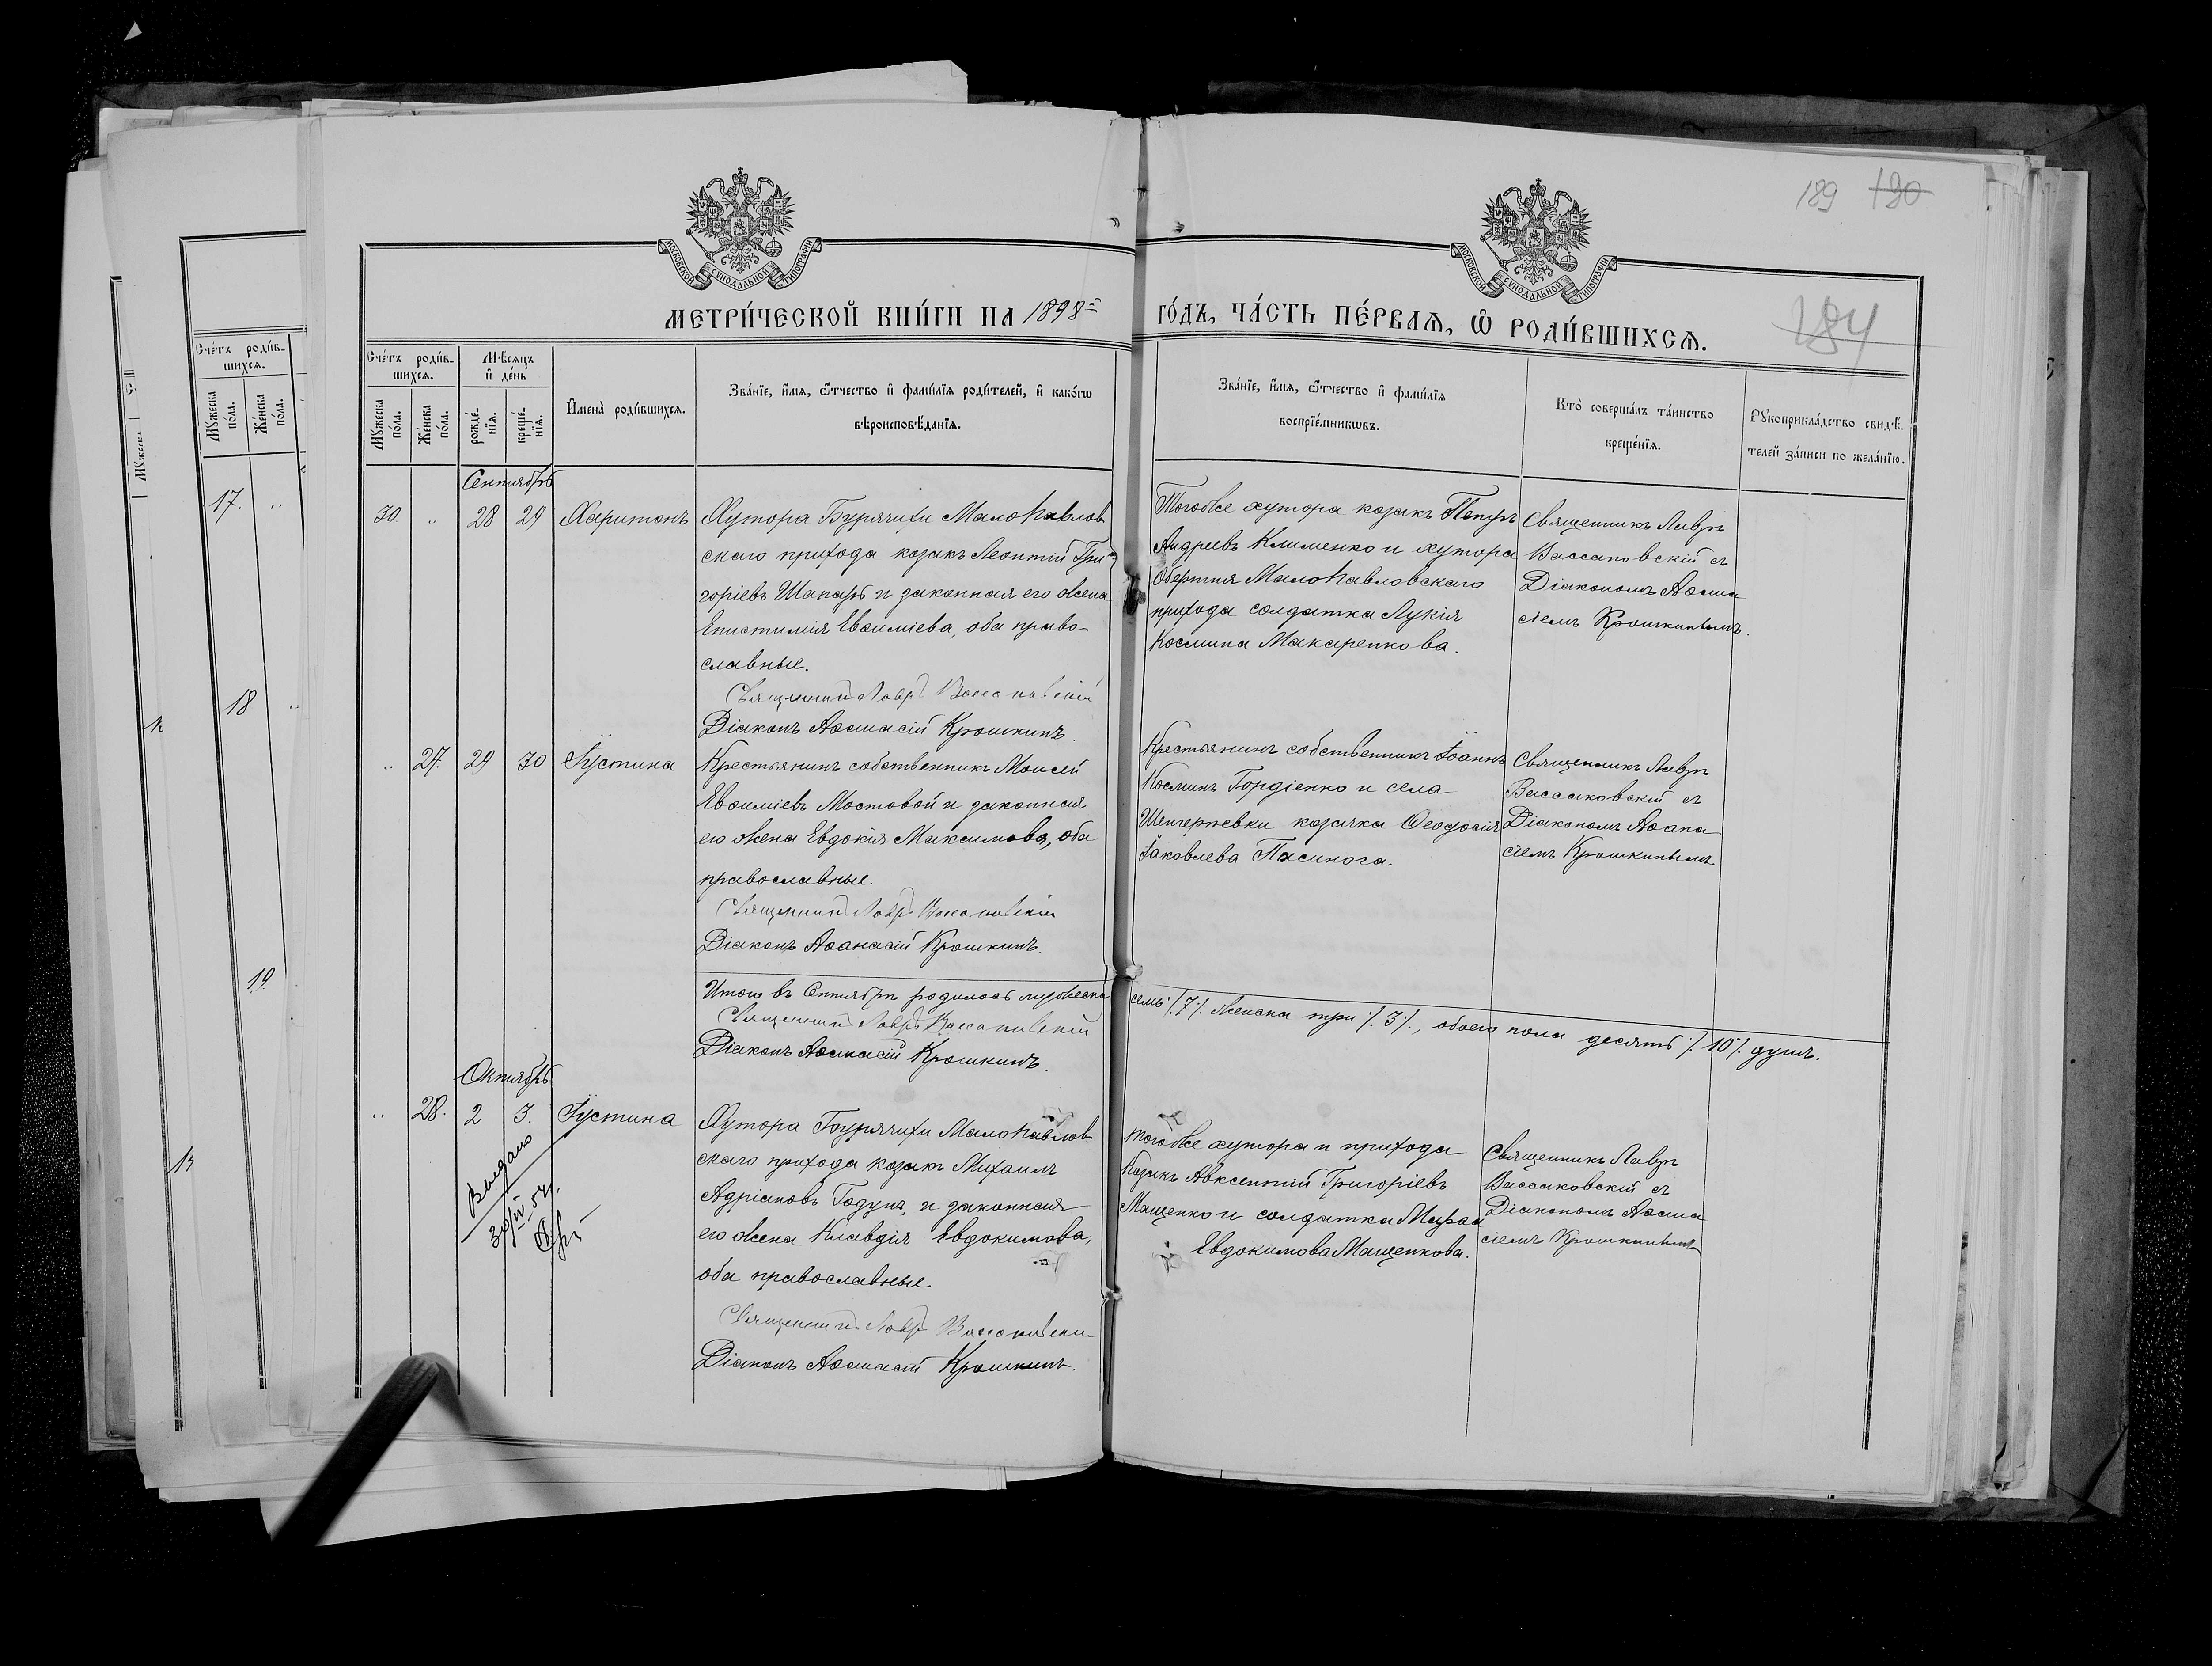 189 130
184
МОСКОВСКОЙ СѴНОДАЛЬНОЙ ТИПОГРАФІИ
МОСКОВСКОЙ СѴНОДАЛЬНОЙ ТИПОГРАФІИ
МЕТРИ́ЧЕСКОЙ КНИ́ГИ НА 1898 ГО́ДЪ, ЧА́СТЬ ПЕ́РВАѦ, Ѡ҆ РОДИ́ВШИХСѦ.
Сче́тъ роди́в-
шихсѧ.
Мꙋжеска
по́ла.
Же́нска
по́ла.
17. "
18 "
19.
Сче́тъ роди́в-
шихсѧ.
Мꙋжеска
по́ла.
Же́нска
по́ла.
Мѣсѧцъ
и҆ де́нь
рожде́-
нїѧ.
креще́-
нїѧ.
И҆мена̀ роди́вшихсѧ.
Зва́нїе, и҆́мѧ, ѻ҆́тчество и҆ фами́лїѧ роди́телей, и҆ како́гѡ
вѣроисповѣ́данїѧ.
Зва́нїе, и҆́мѧ, ѻ҆́тчество и҆ фами́лїѧ
воспрїе́мникѡвъ.
Кто̀ соверша́лъ та́инство
креще́нїѧ.
Рꙋкоприкла́дство свидѣ́-
телей за́писи по жела́нїю.
Сентябрь
30 " 28 29 Харитонъ
Хутора Бурячихи Малопавлов
скаго прихода козакъ Леонтій Гри-
горіевъ Шапарь и законная его жена
Епистимія Евѳиміева, оба право-
славные.
Священникъ Лавръ Вассаковскій
Діаконъ Аѳанасій Крошкинъ.
Тогожъе хутора козакъ Петръ
Андреевъ Клименко и хутора
Обертня Малопавловскаго
прихода солдатка Лукія
Космина Макаренкова.
Священникъ Лавръ
Вассаковскій съ
Діакономъ Аѳана
сіемъ Крошкинымъ.
" 27. 29 30 Іустина
Крестьянинъ собственникъ Моисей
Евѳиміевъ Мостовой и законная
его жена Евдокія Максимова, оба
православные.
Священникъ Лавръ Вассаковскій
Діаконъ Аѳанасій Крошкинъ.
Крестьянинъ собственникъ Іоаннъ
Косминъ Гордіенко и села
козачка Ѳеодосія
Іаковлева Пасинога.
Священникъ Лавръ
Вассаковскій съ
Діакономъ Аѳана
сіемъ Крошкинымъ
Итого въ Сентябрѣ родилось мужеска семь /.7./. женска три /.3./., обоего пола десять /.10/. душъ.
Священникъ Лавръ Вассаковскій
Діаконъ Аѳанасій Крошкинъ.
Октябрь
" 28. 2 3. Іустина
Выдано
30/IV-54.
Хутора Бурячихи Малопавлов
скаго прихода козакъ Михаилъ
Адріановъ Годунъ, и законная
его жена Клавдія Евдокимова,
оба православные.
Священникъ Лавръ Вассаковскій
Діаконъ Аѳанасій Крошкинъ.
тогожъе хутора и прихода
Козакъ Авксентій Григоріевъ
Мащенко и солдатка
Евдокимова Мащенкова.
Священникъ Лавръ
Вассаковскій съ
Діакономъ Аѳана
сіемъ Крошкинымъ